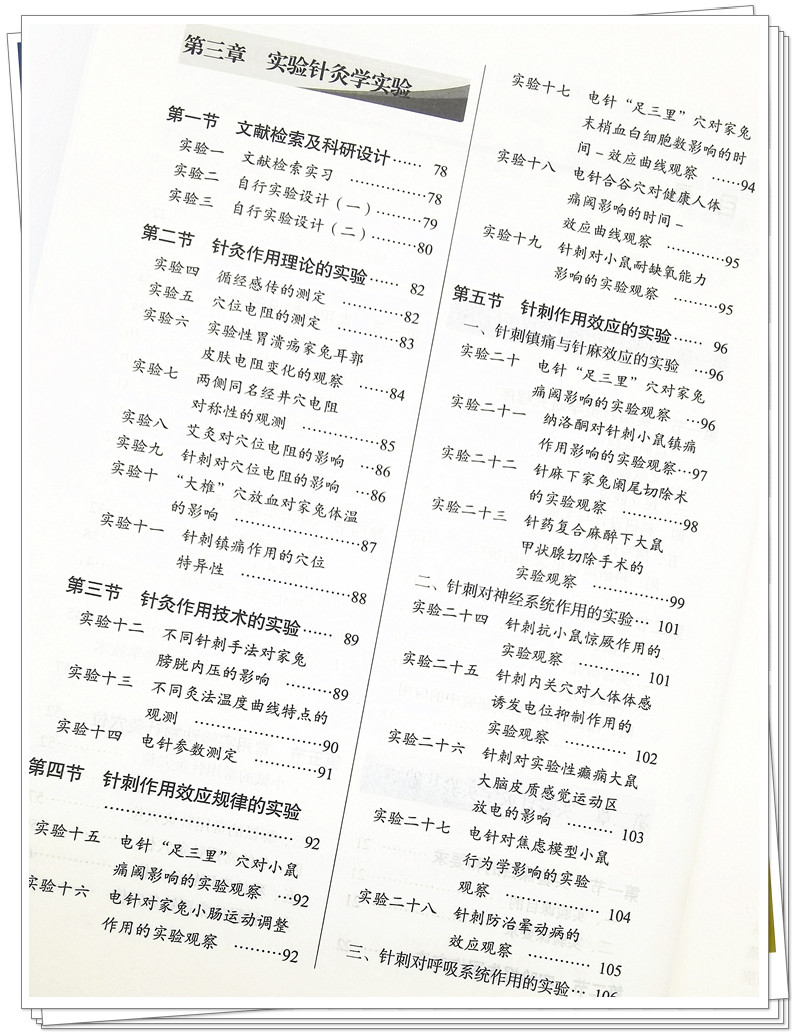 第三章 实验针灸学实验
第一节 文献检索及科研设计…… 78
实验一 文献检索实习 ……………78
实验二 自行实验设计（一）………79
实验三 自行实验设计（二）………80
第二节 针灸作用理论的实验…… 82
实验四 循经感传的测定 …………82
实验五 穴位电阻的测定 …………83
实验六 实验性胃溃疡家兔耳郭
皮肤电阻变化的观察 ……84
实验七 两侧同名经井穴电阻
对称性的观测 ……………85
实验八 艾灸对穴位电阻的影响 …86
实验九 针刺对穴位电阻的影响 …86
实验十 “大椎”穴放血对家兔体温
的影响 ……………………87
实验十一 针刺镇痛作用的穴位
特异性 ……………………88
第三节 针灸作用技术的实验…… 89
实验十二 不同针刺手法对家兔
膀胱内压的影响 ………89
实验十三 不同灸法温度曲线特点的
观测 ……………………90
实验十四 电针参数测定 …………91
第四节 针刺作用效应规律的实验
…………………………… 92
实验十五 电针“足三里”穴对小鼠
痛阈影响的实验观察 …92
实验十六 电针对家兔小肠运动调整
作用的实验观察 ………92
实验十七 电针“足三里”穴对家兔
末梢血白细胞数影响的时
间－效应曲线观察 ……94
实验十八 电针合谷穴对健康人体
痛阈影响的时间－
效应曲线观察 …………95
实验十九 针刺对小鼠耐缺氧能力
影响的实验观察 ………95
第五节 针刺作用效应的实验…… 96
一、针刺镇痛与针麻效应的实验 …96
实验二十 电针“足三里”穴对家兔
痛阈影响的实验观察 …96
实验二十一 纳洛酮对针刺小鼠镇痛
作用影响的实验观察…97
实验二十二 针麻下家兔阑尾切除术
的实验观察 …………98
实验二十三 针药复合麻醉下大鼠
甲状腺切除手术的
实验观察 ……………99
二、针刺对神经系统作用的实验… 101
实验二十四 针刺抗小鼠惊厥作用的
实验观察 ………… 101
实验二十五 针刺内关穴对人体体感
诱发电位抑制作用的
实验观察 ………… 102
实验二十六 针刺对实验性癫痫大鼠
大脑皮质感觉运动区
放电的影响 ……… 103
实验二十七 电针对焦虑模型小鼠
行为学影响的实验
观察 ……………… 104
实验二十八 针刺防治晕动病的
效应观察 ………… 105
三、针刺对呼吸系统作用的实验… 106